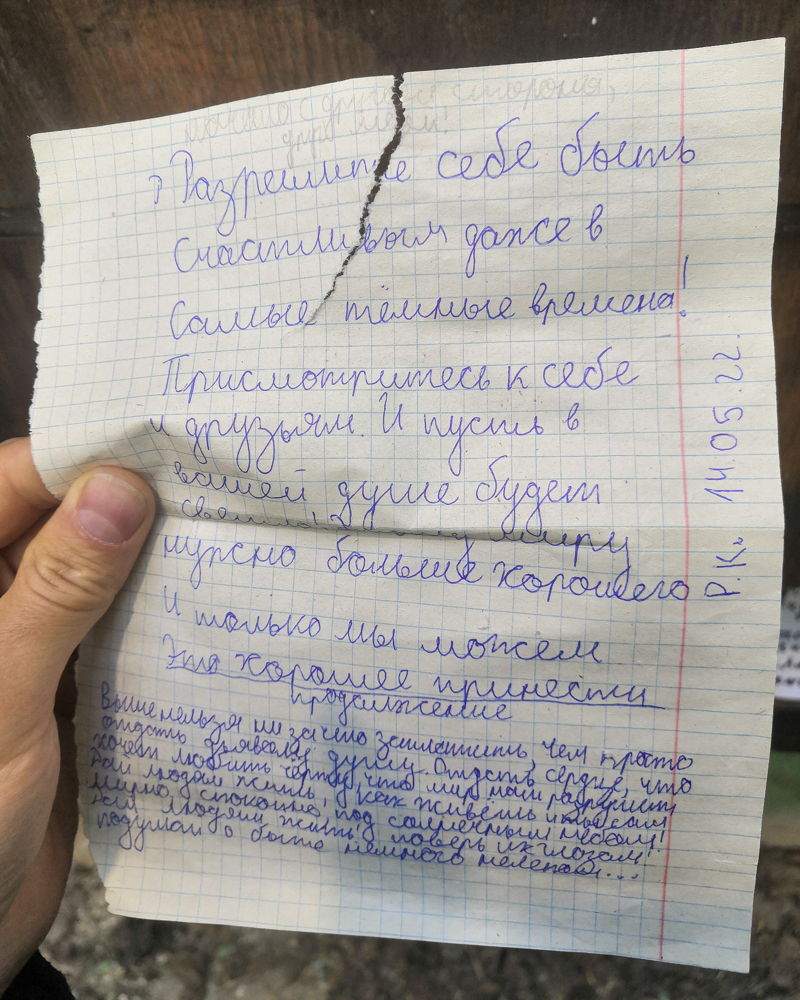 начало с другой стороны,
друг мой!
Разрешите себе быть
счастливым даже в
самые тёмные времена!
Присмотритесь к себе
и друзьям. И пусть в
вашей душе будет
миру
нужно больше хорошего
И только мы можем
Это хорошее принести
продолжение
Выше нельзя ни за что заплатить, чем просто
отдать дьяволу душу. Отдать сердце, что
хочет любить, черту, что мир наш разрушит
Дай людям жить, как живёшь и ты сам
Мирно, спокойно, под солнечным небом!
Дай людям жить, поверь их глазам!
подумай о быте немного нелепом...
Р.К. 14.05.22.